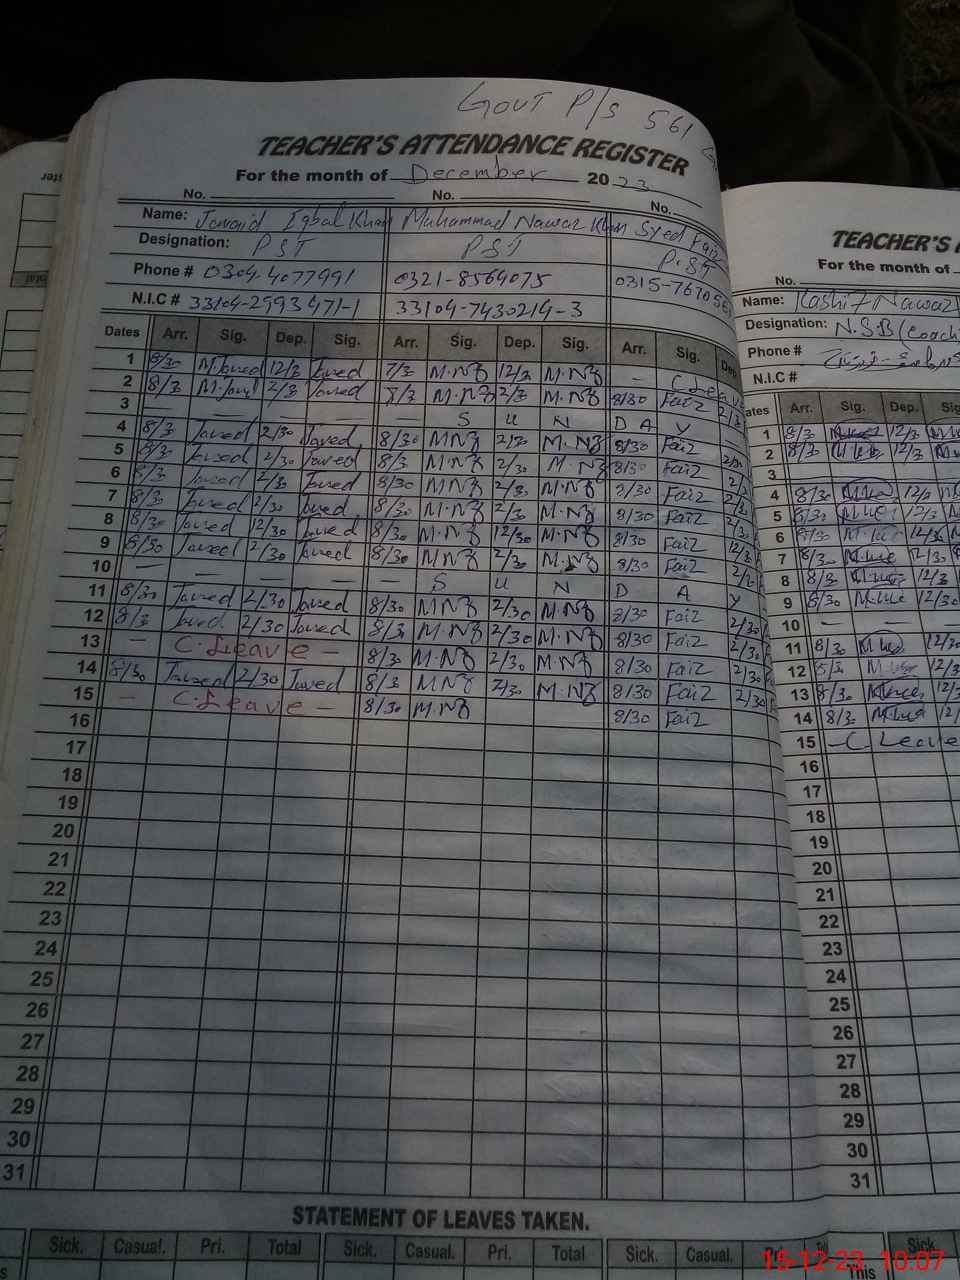 GOVT P/S 561
TEACHER'S ATTENDANCE REGISTER
For the month of December 2023
No. No. No.
Name: Javaid Iqbal Khan Muhammad Nawaz Khan Syed Faiz
Designation: PST PST P.ST
Phone # 0304-4077991 0321-8564075 0315-767056
N.I.C # 33104-2593471-1 33104-7430214-3
Dates Arr. Sig. Dep. Sig. Arr. Sig. Dep. Sig. Arr. Sig. Dep
1 8/30 M.Javed 12/3 Javed 7/3 M.NZ 12/3 M.NZ — C.Leave
2 8/3 2/3 Javed 8/3 M.NZ 2/3 M.NZ 8/30 Faiz 2/3
3 — — — — — S U N D A Y —
4 8/3 Javed 2/30 Javed 8/30 MNZ 2/30 M.NZ 8/30 Faiz 2/30
5 8/3 Javed 2/30 Javed 8/3 M.NZ 2/30 M.NZ 8/30 Faiz 2/3
6 8/3 Javed 2/30 Javed 8/30 MNZ 2/3 M.NZ 8/30 Faiz 2/30
7 8/30 Javed 2/30 Javed 8/30 M.NZ 2/30 M.NZ 8/30 Faiz 2/3
8 8/30 Javed 12/30 Javed 8/30 M.NZ 12/30 M.NZ 8/30 Faiz 12/30
9 8/30 Javed 2/30 Javed 8/30 MNZ 2/30 M.NZ 8/30 Faiz
10 — — — — — S U N D A Y
11 8/30 Javed 2/30 Javed 8/30 MNZ 2/30 MNZ 8/30 Faiz 2/30
12 8/3 Javed 2/30 Javed 8/3 M.NZ 2/30 M.NZ 8/30 Faiz 2/30
13 — C.Leave — 8/30 M.NZ 2/30 M.NZ 8/30 Faiz 2/30
14 8/30 Javed 2/30 Javed 8/3 MNZ 2/30 M.NZ 8/30 Faiz 2/30
15 — C.Leave — 8/30 MNZ 8/30 Faiz
16
17
18
19
20
21
22
23
24
25
26
27
28
29
30
31
STATEMENT OF LEAVES TAKEN.
Sick. Casual. Pri. Total Sick. Casual. Pri. Total Sick. Casual. Pri
TEACHER'S
For the month of
No.
Name: Kashif Nawaz
Designation: N.S.B (Coach
Phone #
N.I.C #
ates Arr. Sig. Dep. Sig
1 8/3 12/3
2 8/3 12/3
3
4 8/30 12/3
5 8/30 12/3
6 8/30 12/30
7 8/30 12/30
8 8/3 12/3
9 8/30 12/30
10 — — —
11 8/30 12/30
12 12/3
13 8/30 12/3
14 8/3
15 — C. Leave
16
17
18
19
20
21
22
23
24
25
26
27
28
29
30
31
This
Sick.
15-12-23 10:07